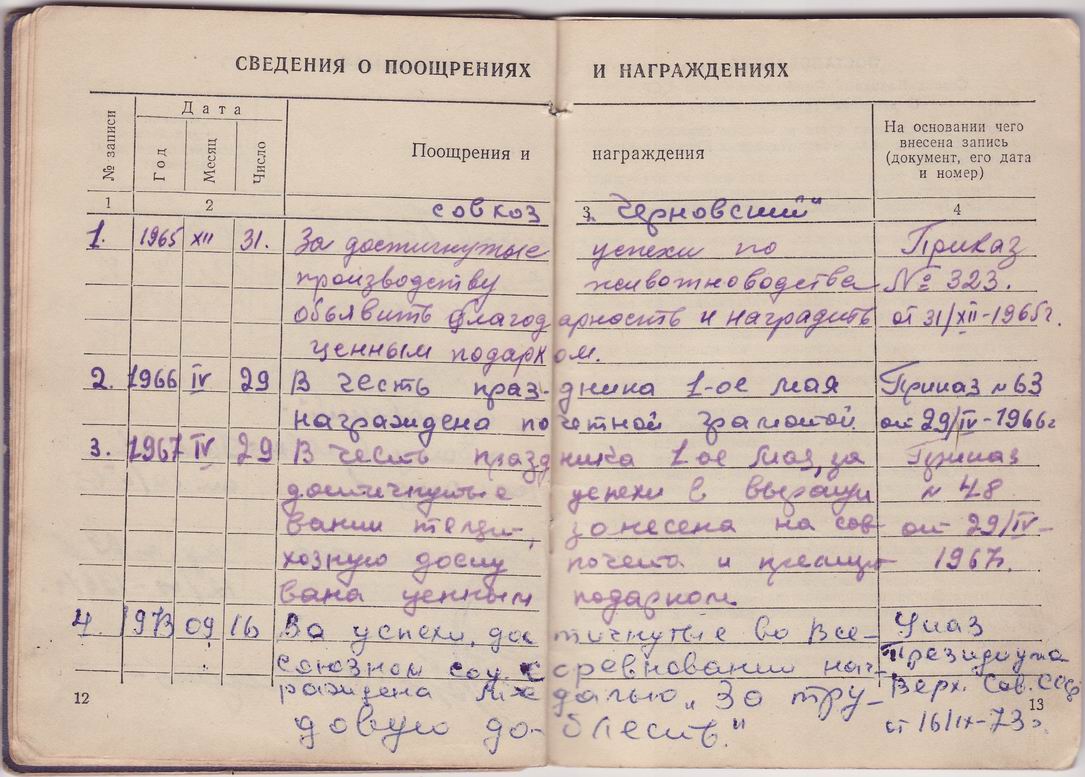 СВЕДЕНИЯ О ПООЩРЕНИЯХ И НАГРАЖДЕНИЯХ
№ записи
Дата
Год
Месяц
Число
Поощрения и награждения
На основании чего
внесена запись
(документ, его дата
и номер)
1 2 3 4
совхоз „Черновский"
1. 1965 XII 31. За достигнутые успехи по Приказ
производству животноводства № 323.
объявить благодарность и наградить от 31/XII-1965г.
ценным подарком.
2. 1966 IV 29 В честь праздника 1-ое мая Приказ №63
награждена почетной грамотой от 29/IV-1966г
3. 1967 IV 29 В честь праздника 1-ое Мая, за Приказ
достигнутые успехи в выращи № 48
вании телят, занесена на сов от 29/IV-
хозную доску почета и премиро 1967г.
вана ценным подарком.
4. 1973 09 16 За успехи, достигнутые во Все- Указ
союзном соц. соревновании наг- Президиума
раждена медалью „За тру- Верх. Сов. СССР
довую доблесть." от 16/IX-73г.
12
13